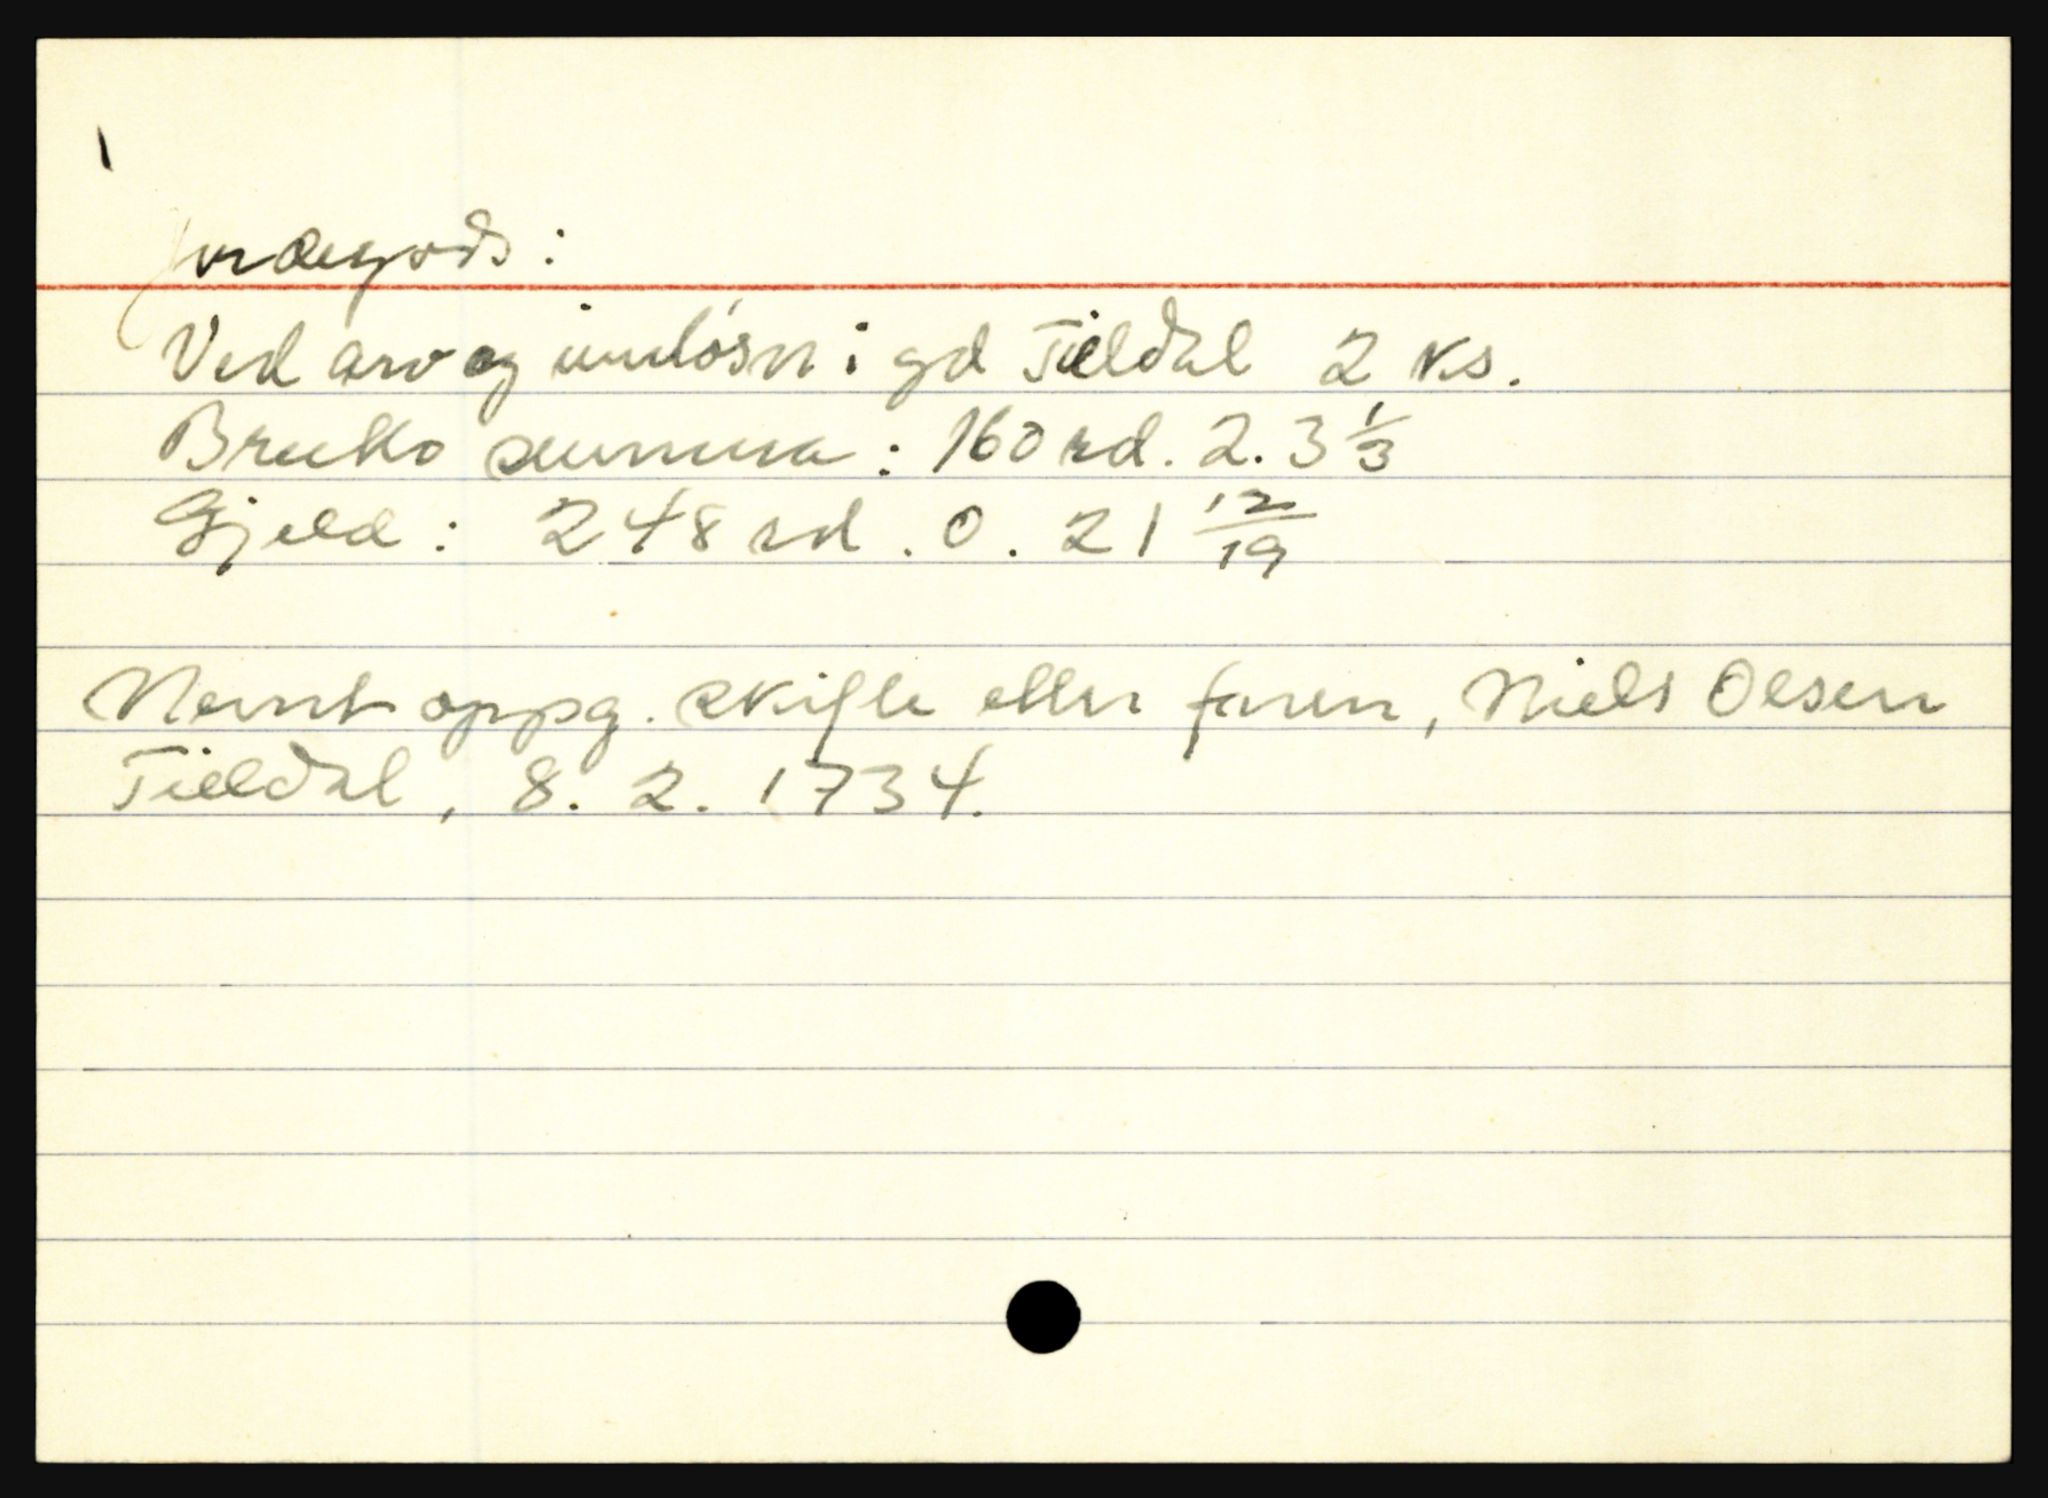 Jordegods:
Ved arv og innløsn i gd Tieldal 2 ks.
Brutto summa: 160 rd. 2. 3 1/3
Gjeld: 248 rd. 0. 21 12/19
Nevnt oppg. skifte etter faren, Niels Olsen
Tieldal, 8. 2. 1734.